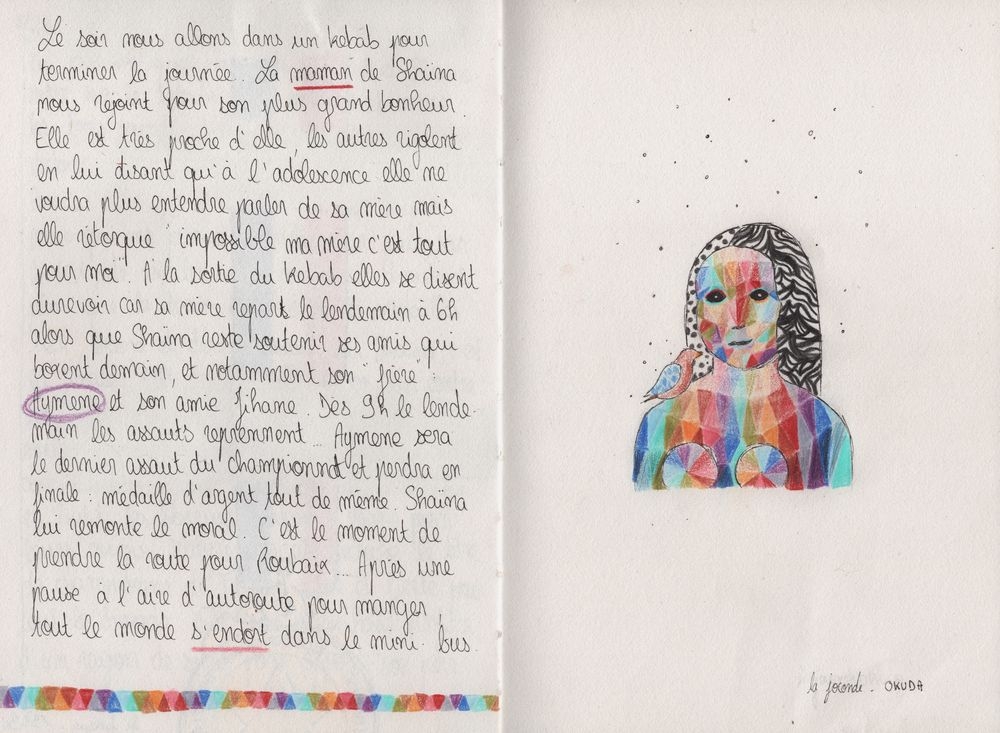 Le soir nous allons dans un kebab pour
terminer la journée. La maman de Shaïna
nous rejoint pour son plus grand bonheur.
Elle est très proche d'elle, les autres rigolent
en lui disant qu'à l'adolescence elle ne
voudra plus entendre parler de sa mère mais
elle rétorque "impossible ma mère c'est tout
pour moi". A la sortie du kebab elles se disent
aurevoir car sa mère repart le lendemain à 6h
alors que Shaïna reste soutenir ses amis qui
boxent demain, et notamment son "frère" :
Aymene et son amie Jihane. Dès 9h le lende-
main les assauts reprennent... Aymene sera
le dernier assaut du championnat et perdra en
finale : médaille d'argent tout de même. Shaïna
lui remonte le moral. C'est le moment de
prendre la route pour Roubaix... Après une
pause à l'aire d'autoroute pour manger,
tout le monde s'endort dans le mini-bus.
la joconde - OKUDA